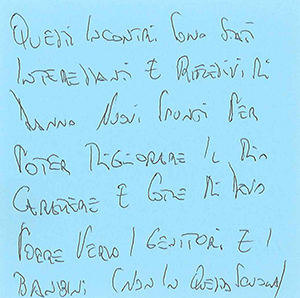 QUESTI INCONTRI SONO STATI
INTERESSANTI E RIFLESSIVI MI
DANNO NUOVI SPUNTI PER
POTER MIGLIORARE IL MIO
CARATTERE E COME MI DEVO
PORRE VERSO I GENITORI E I
BAMBINI (NON IN QUESTA SCUOLA)